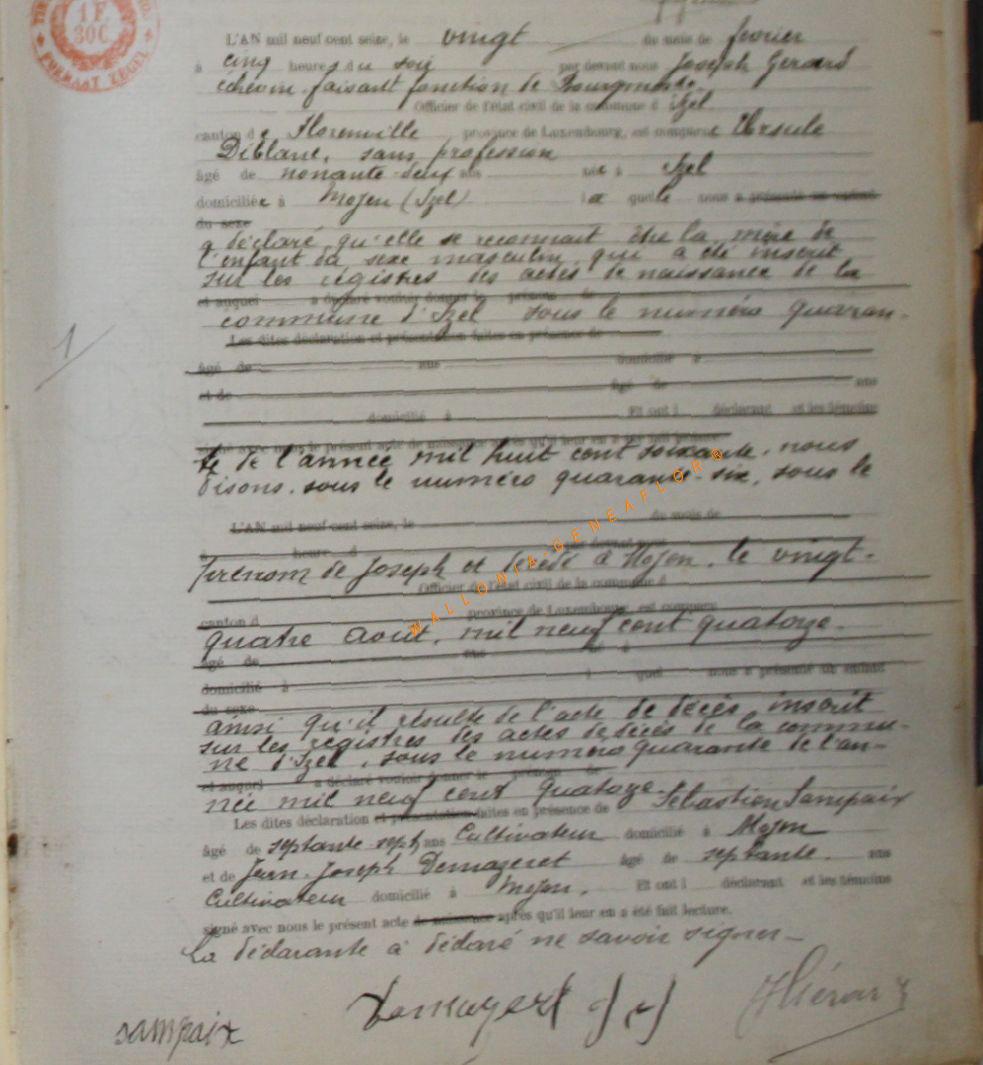 1 F.
30C
FORMAAT ZEGEL
L'AN mil neuf cent seize, le vingt du mois de fevrier
à cinq heures du soir par devant nous Joseph Gerard
échevin faisant fonction de Bourgmestre
Officier de l'état civil de la commune d Izel
canton de Florenville province de Luxembourg, est comparue Ursule
Diblanc, sans profession
âgé de nonante-deux ans née à Izel
domiciliée à Moyen (Izel) laquelle nous a présenté un enfant
du sexe
a déclaré qu'elle se reconnait être la mère de
l'enfant du sexe masculin qui a été inscrit
sur les registres des actes de naissance de la
et auquel a déclaré vouloir donner le prénom de
commune d'Izel sous le numéro quaran-
Les dites déclaration et présentation faites en présence de
1
âgé de ans domicilié à
et de âgé de ans
domicilié à Et ont l déclarant et les témoins
signé avec nous le présent acte de naissance après qu'il leur en a été fait lecture.
te de l'année mil huit cent soixante, nous
disons, sous le numéro quarante-six, sous le
L'AN mil neuf cent seize, le du mois de
à heure d par devant nous
prénom de Joseph et décédé à Moyen, le vingt-
Officier de l'état civil de la commune d
canton d province de Luxembourg, est comparu
quatre Août, mil neuf cent quatorze
âgé de ans né à
domicilié à l quel nous a présenté un enfant
du sexe
ainsi qu'il résulte de l'acte de décès inscrit
sur les registres des actes de décès de la commu-
ne d'Izel, sous le numéro quarante de l'an-
et auquel a déclaré vouloir donner le prénom de
née mil neuf cent quatorze.
Les dites déclaration et présentation faites en présence de Sébastien Sampaix
âgé de septante-sept ans Cultivateur domicilié à Moyen
et de Jean-Joseph Demazeret âgé de septante ans
Cultivateur domicilié à Moyen. Et ont l déclarant et les témoins
signé avec nous le présent acte de naissance après qu'il leur en a été fait lecture.
La déclarante à déclaré ne savoir signer-
sampaix
WALLONIA-GENEAFLORE